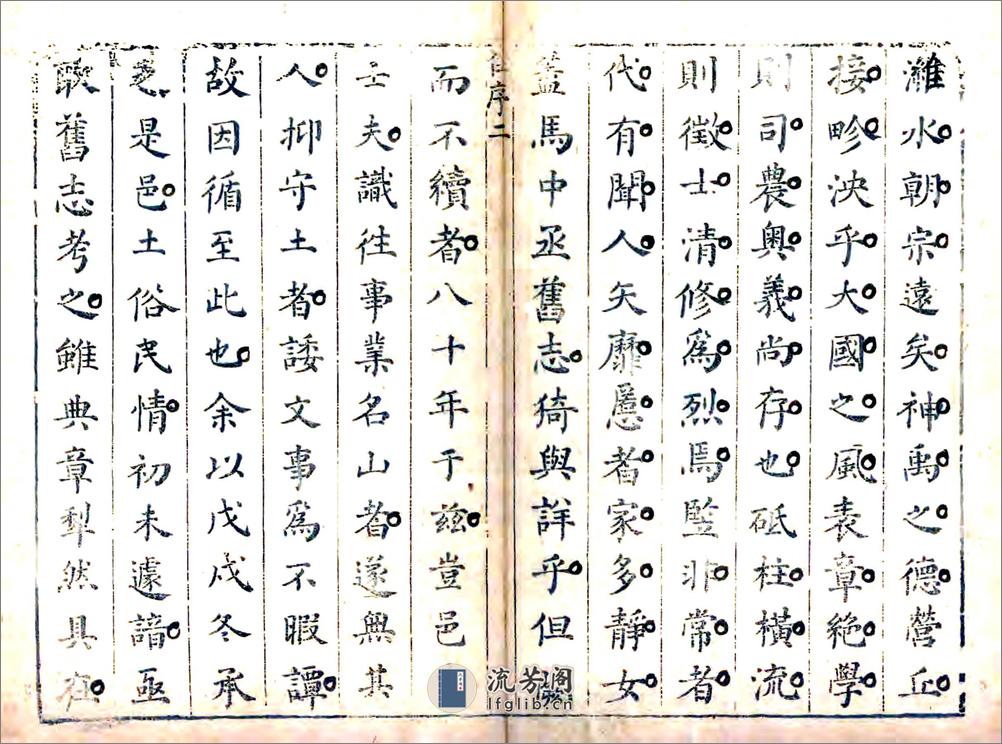 濰水朝宗遠矣神禹之德營丘
接畛泱乎大國之風表章絕學
則司農奧義尚存也砥柱橫流
則徵士清修爲烈焉監非常者
代有聞人矢靡慝者家多靜女
蓋馬中丞舊志猗與詳乎但
序二
而不續者八十年于茲豈邑
士夫識往事業名山者遂無其
人抑守土者諉文事爲不暇譚
故因循至此也余以戊戌冬承
乏是邑土俗民情初未遽諳亟
取舊志考之雖典章犁然具在
流芳閣
lfglib.cn